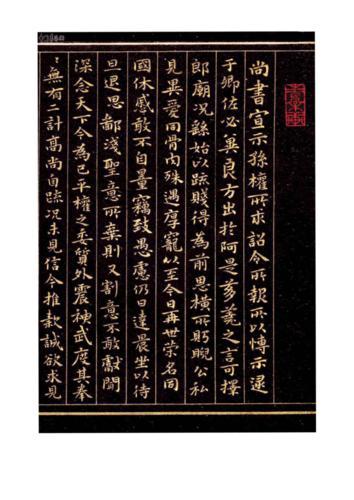 尚書宣示孫權所求詔令所報所以博示逮
于卿佐必冀良方出於阿是芻蕘之言可擇
郎廟況繇始以疏賤得為前恩橫所眄睨公私
見異愛同骨肉殊遇厚寵以至今日再世榮名同
國休慼敢不自量竊致愚慮仍日達晨坐以待
旦退思鄙淺聖意所棄則又割意不敢獻聞
深念天下今為已平權之委質外震神武度其拳
〻無有二計高尚自疏況未見信今推款誠欲求見